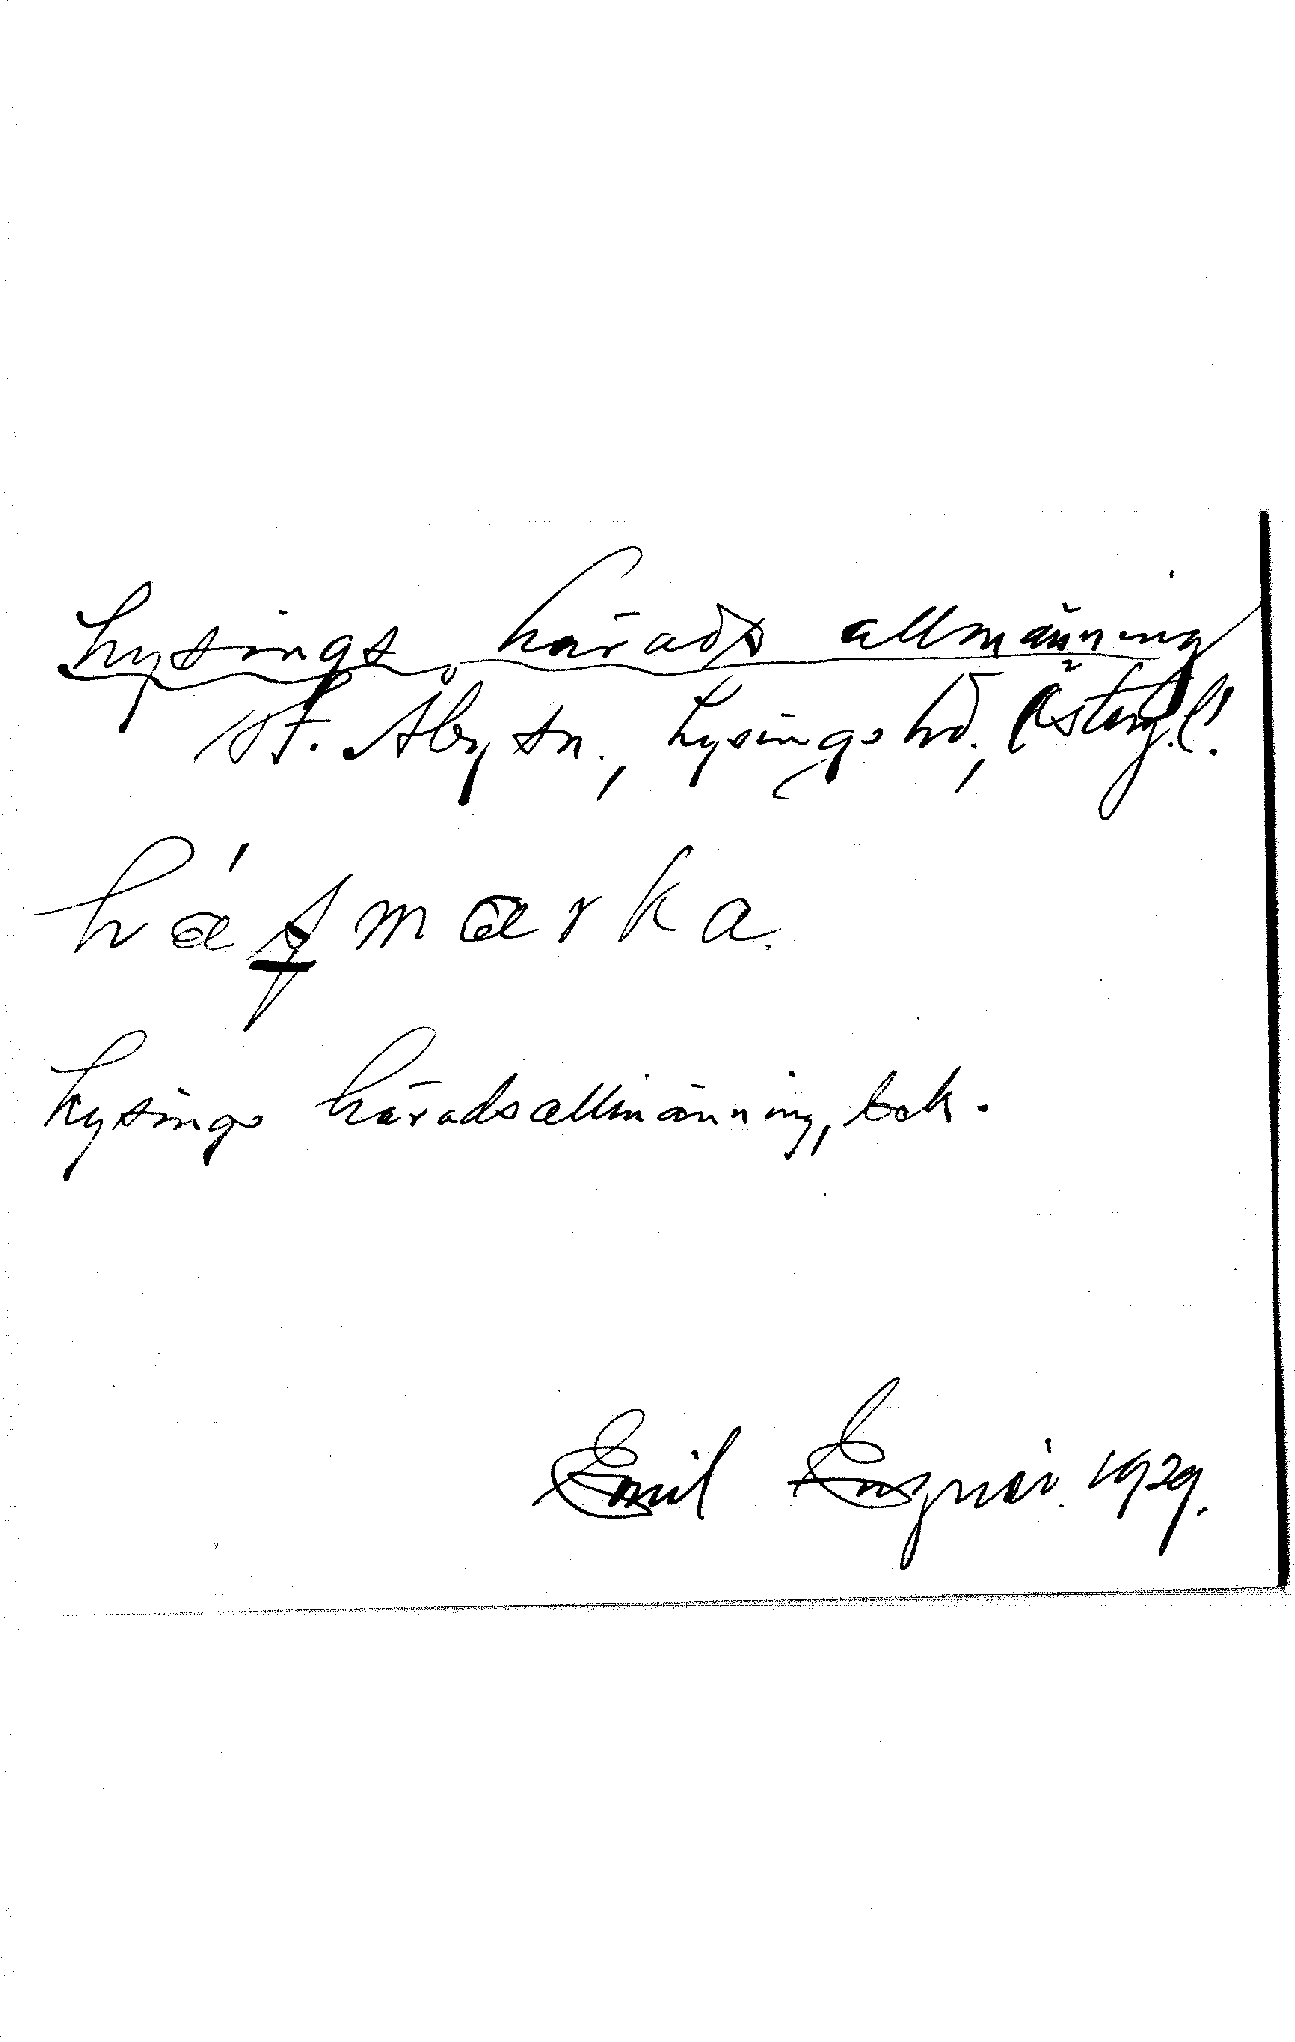 Lysings härads allmänning
St. Åby sn., Lysings hd, Österg.l.
Lysings häradsallmänning, bek.
Emil 1929.